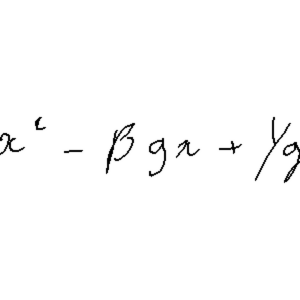 x² - βgx + γg